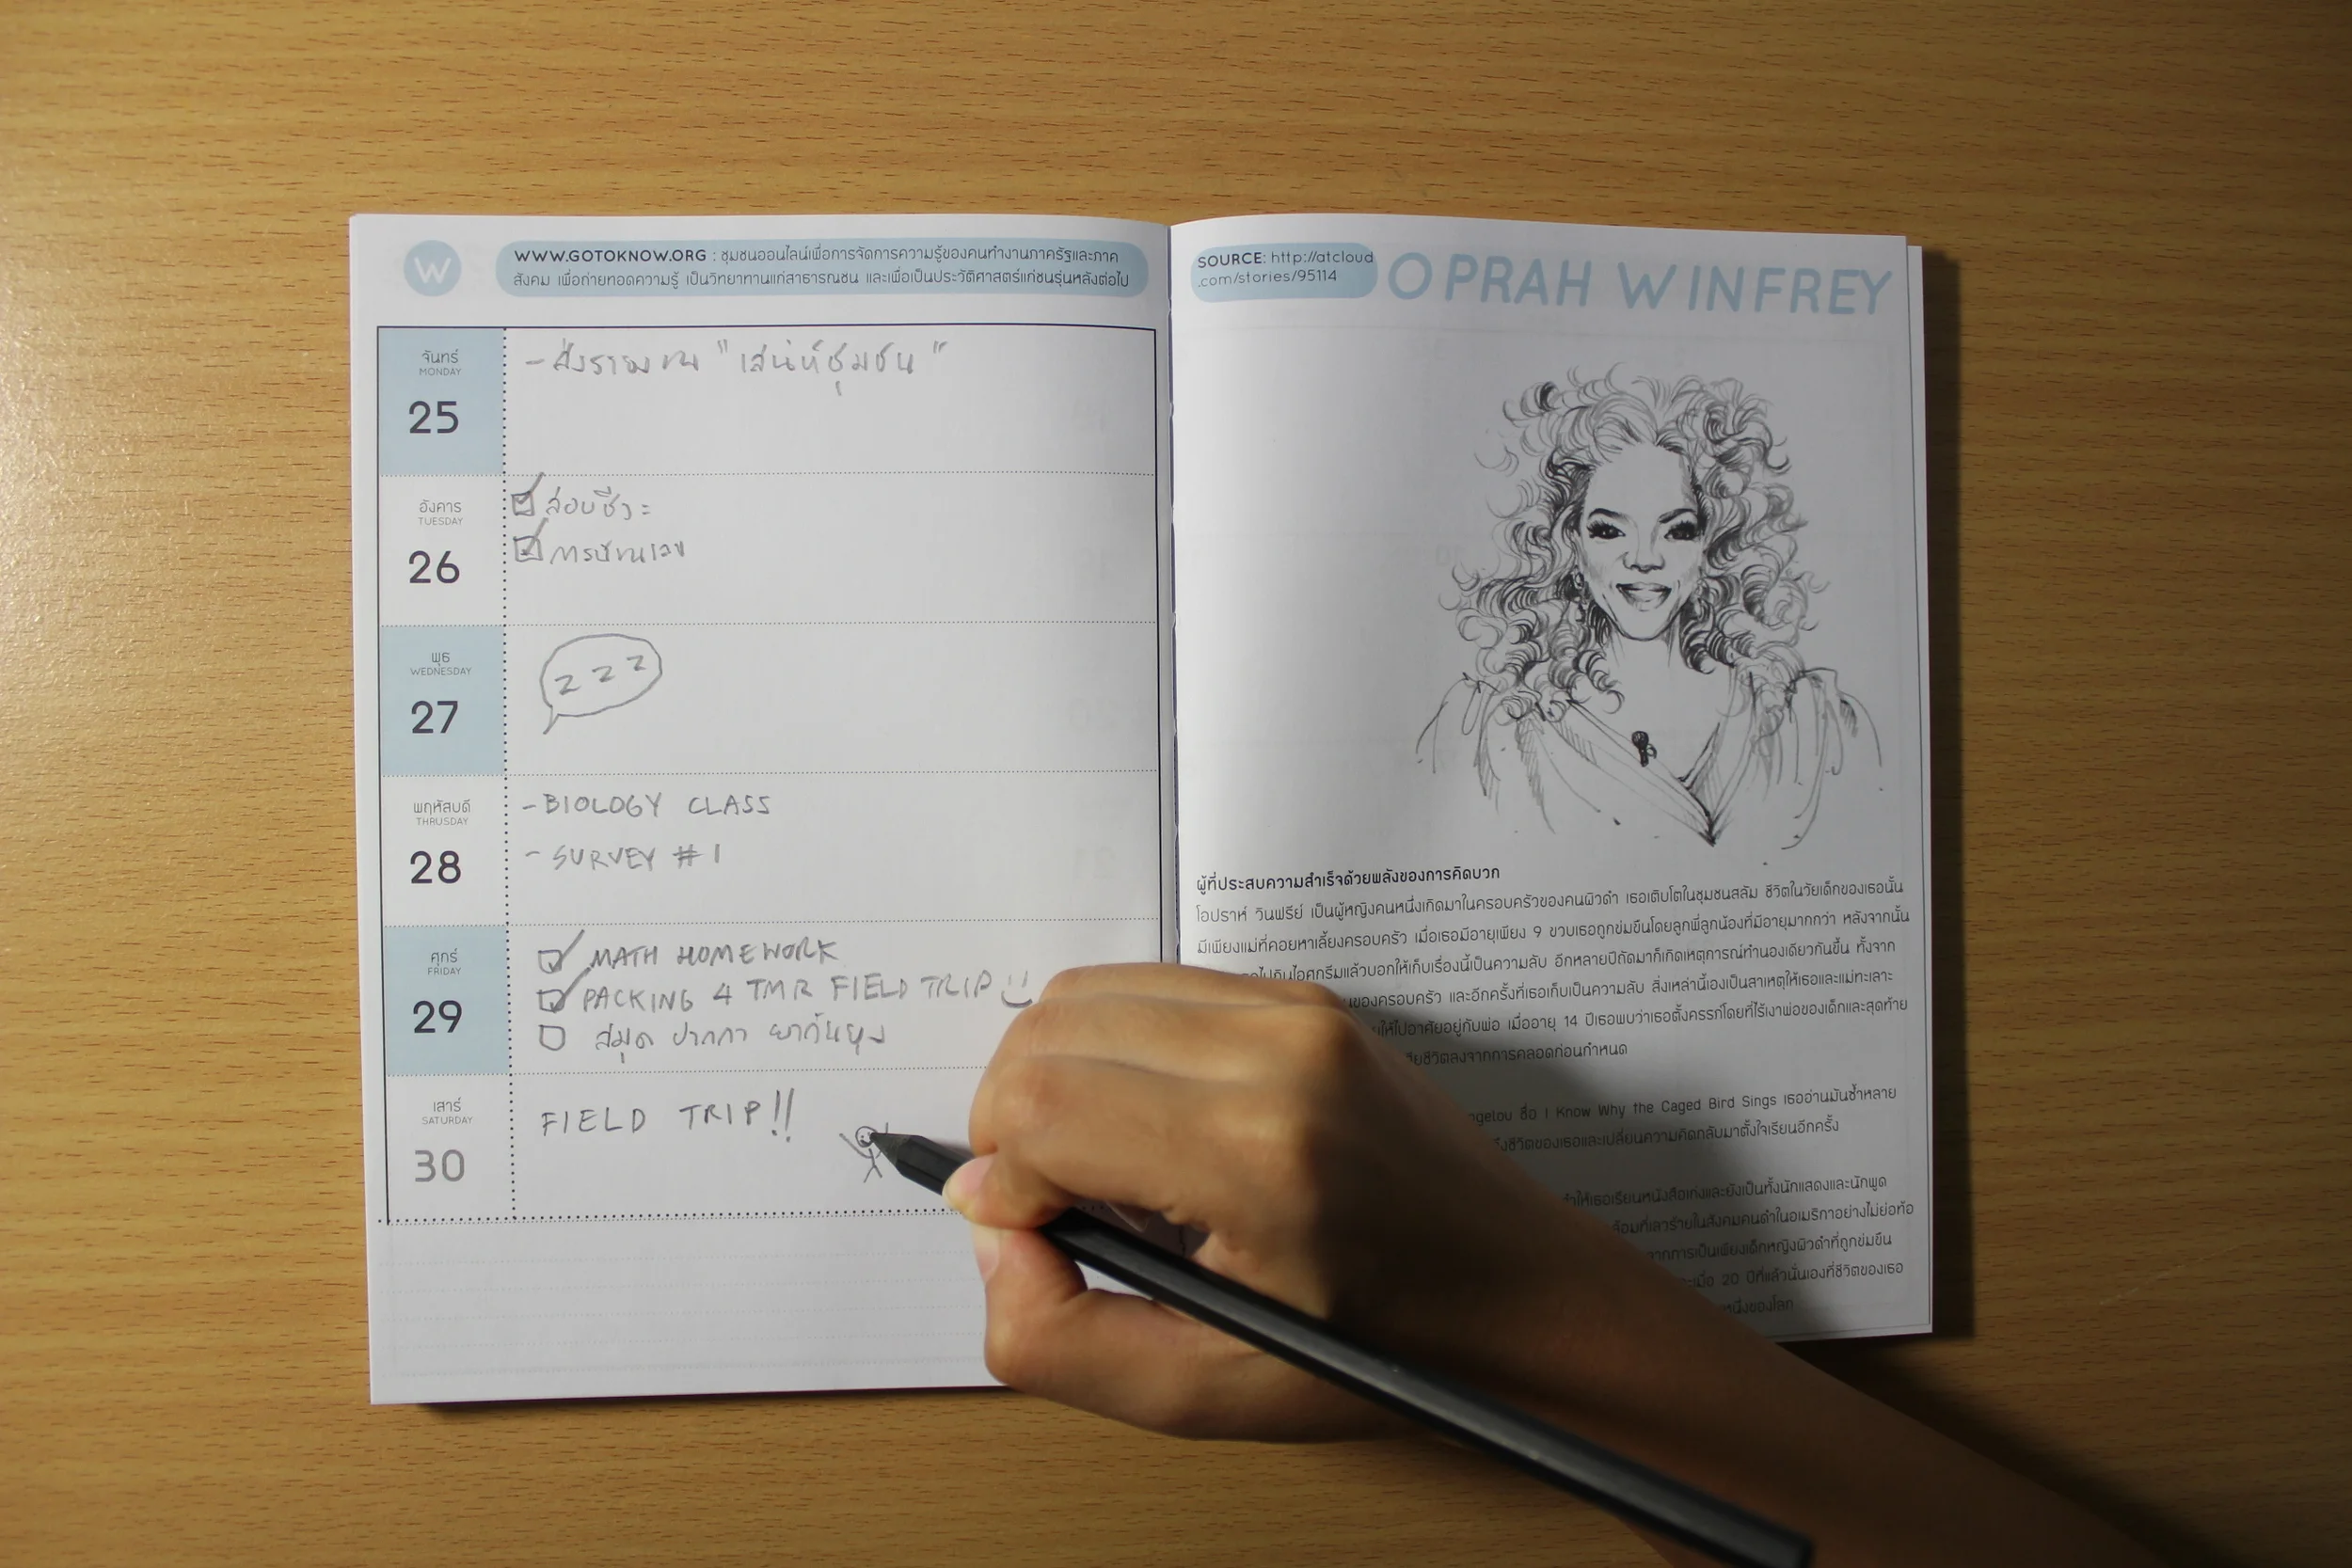 W
WWW.GOTOKNOW.ORG : ชุมชนออนไลน์เพื่อการจัดการความรู้ของคนทำงานภาครัฐและภาค
สังคม เพื่อถ่ายทอดความรู้ เป็นวิทยาทานแก่สาธารณชน และเพื่อเป็นประวัติศาสตร์แก่ชนรุ่นหลังต่อไป
จันทร์
MONDAY
25
- ส่งรายงาน "เสน่ห์ชุมชน"
อังคาร
TUESDAY
26
สอบชีวะ
การบ้านเลข
พุธ
WEDNESDAY
27
z z z
พฤหัสบดี
THRUSDAY
28
- BIOLOGY CLASS
- SURVEY #1
ศุกร์
FRIDAY
29
MATH HOMEWORK
PACKING 4 TMR FIELD TRIP
สมุด ปากกา ยากันยุง
เสาร์
SATURDAY
30
FIELD TRIP!!
SOURCE: http://atcloud
.com/stories/95114
OPRAH WINFREY
ผู้ที่ประสบความสำเร็จด้วยพลังของการคิดบวก
โอปราห์ วินฟรีย์ เป็นผู้หญิงคนหนึ่งเกิดมาในครอบครัวของคนผิวดำ เธอเติบโตในชุมชนสลัม ชีวิตในวัยเด็กของเธอนั้น
มีเพียงแม่ที่คอยหาเลี้ยงครอบครัว เมื่อเธอมีอายุเพียง 9 ขวบเธอถูกข่มขืนโดยลูกพี่ลูกน้องที่มีอายุมากกว่า หลังจากนั้น
ไปกินไอศกรีมแล้วบอกให้เก็บเรื่องนี้เป็นความลับ อีกหลายปีถัดมาก็เกิดเหตุการณ์ทำนองเดียวกันขึ้น ทั้งจาก
ของครอบครัว และอีกครั้งที่เธอเก็บเป็นความลับ สิ่งเหล่านี้เองเป็นสาเหตุให้เธอและแม่ทะเลาะ
ให้ไปอาศัยอยู่กับพ่อ เมื่ออายุ 14 ปีเธอพบว่าเธอตั้งครรภ์โดยที่ไร้เงาพ่อของเด็กและสุดท้าย
ชีวิตลงจากการคลอดก่อนกำหนด
ชื่อ I Know Why the Caged Bird Sings เธออ่านมันซ้ำหลาย
ชีวิตของเธอและเปลี่ยนความคิดกลับมาตั้งใจเรียนอีกครั้ง
ทำให้เธอเรียนหนังสือเก่งและยังเป็นทั้งนักแสดงและนักพูด
ที่เลวร้ายในสังคมคนดำในอเมริกาอย่างไม่ย่อท้อ
จากการเป็นเพียงเด็กหญิงผิวดำที่ถูกข่มขืน
เมื่อ 20 ปีที่แล้วนั่นเองที่ชีวิตของเธอ
หนึ่งของโลก